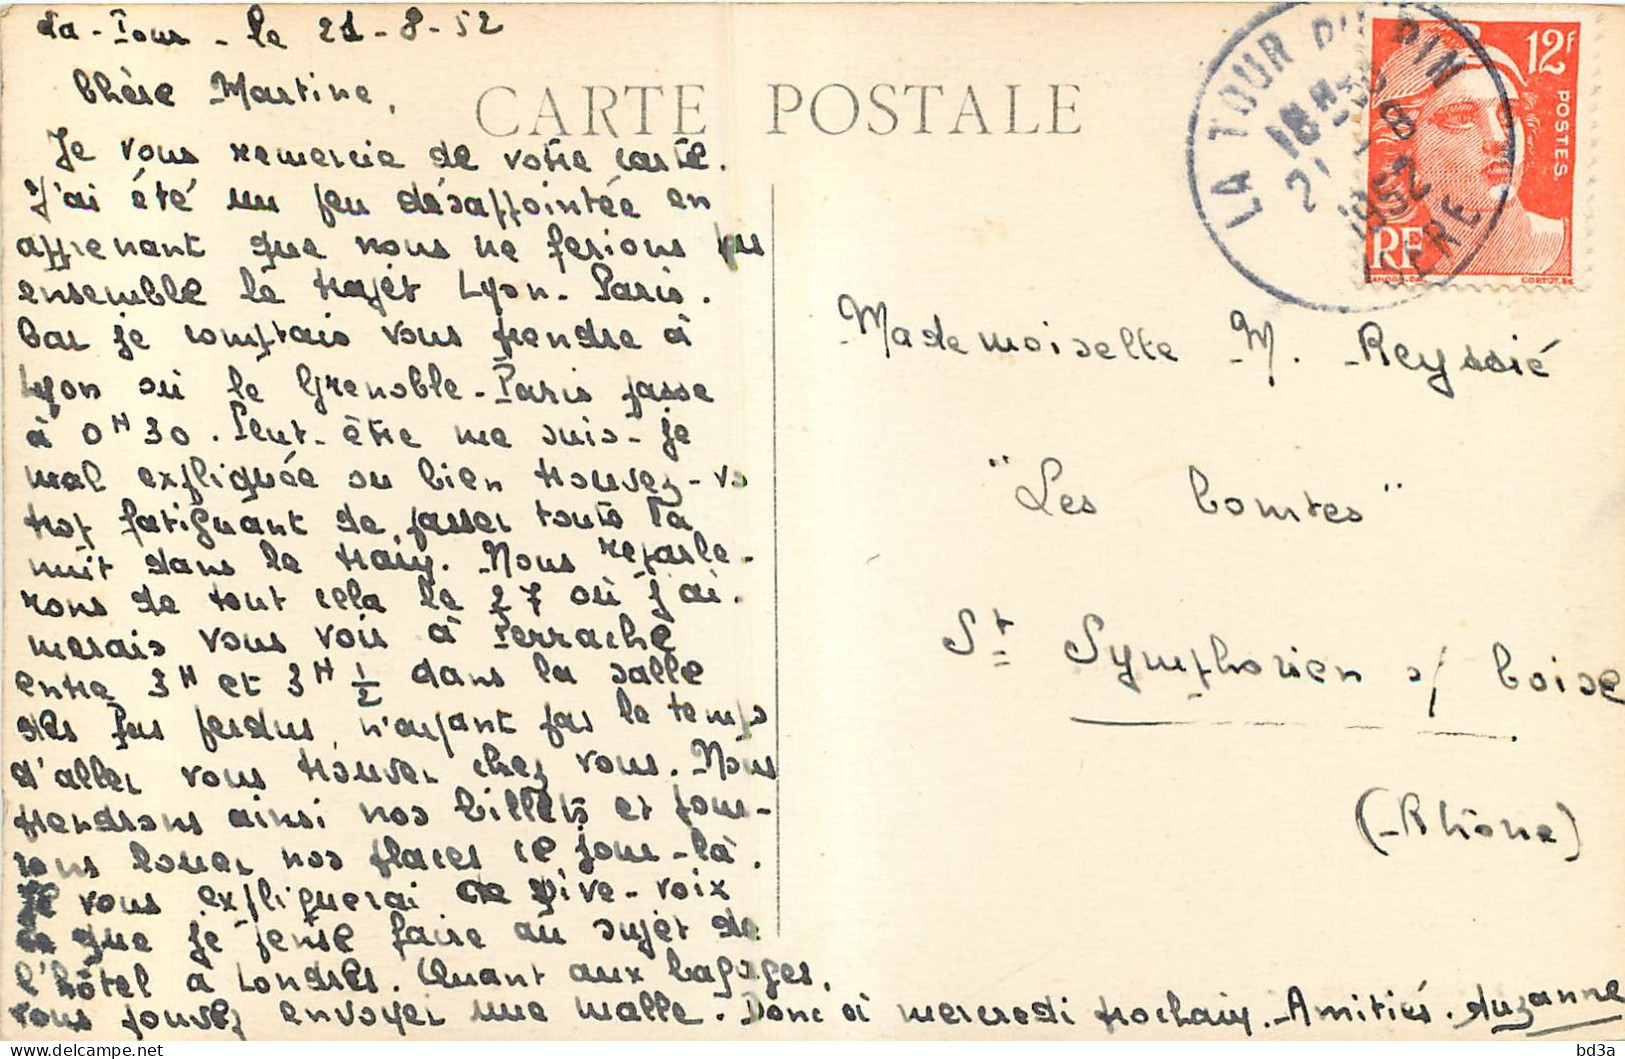 La-Tour - le 21-8-52
Chère Martine,
Je vous remercie de votre carte.
J'ai été un peu désappointée en
apprenant que nous ne ferions pas
ensemble le trajet Lyon-Paris.
Car je comptais vous prendre à
Lyon où le Grenoble-Paris passe
à 0H30. Peut-être me suis-je
mal expliquée ou bien trouvez-vs
trop fatiguant de passer toute la
nuit dans le train. Nous reparle-
rons de tout cela le 27 où j'ai-
merais vous voir à Perrache
entre 3H et 3H 1/2 dans la salle
des pas perdus n'ayant pas le temps
d'aller vous trouver chez vous. Nous
prendrons ainsi nos billets et pour-
rons louer nos places ce jour-là.
Je vous expliquerai de vive-voix
ce que je pense faire au sujet de
l'hôtel à Londres. Quant aux bagages,
vous pouvez envoyer une malle. Donc à mercredi prochain. Amitiés. Suzanne
CARTE POSTALE
LA TOUR DU PIN
18H30
21-8
1952
ISERE
12F
POSTES
RF
GANDON.DEL
CORTOT.SC
Mademoiselle M. Reyssié
"Les Comtes"
St Symphorien s/ Coise
(Rhône)
bd3a